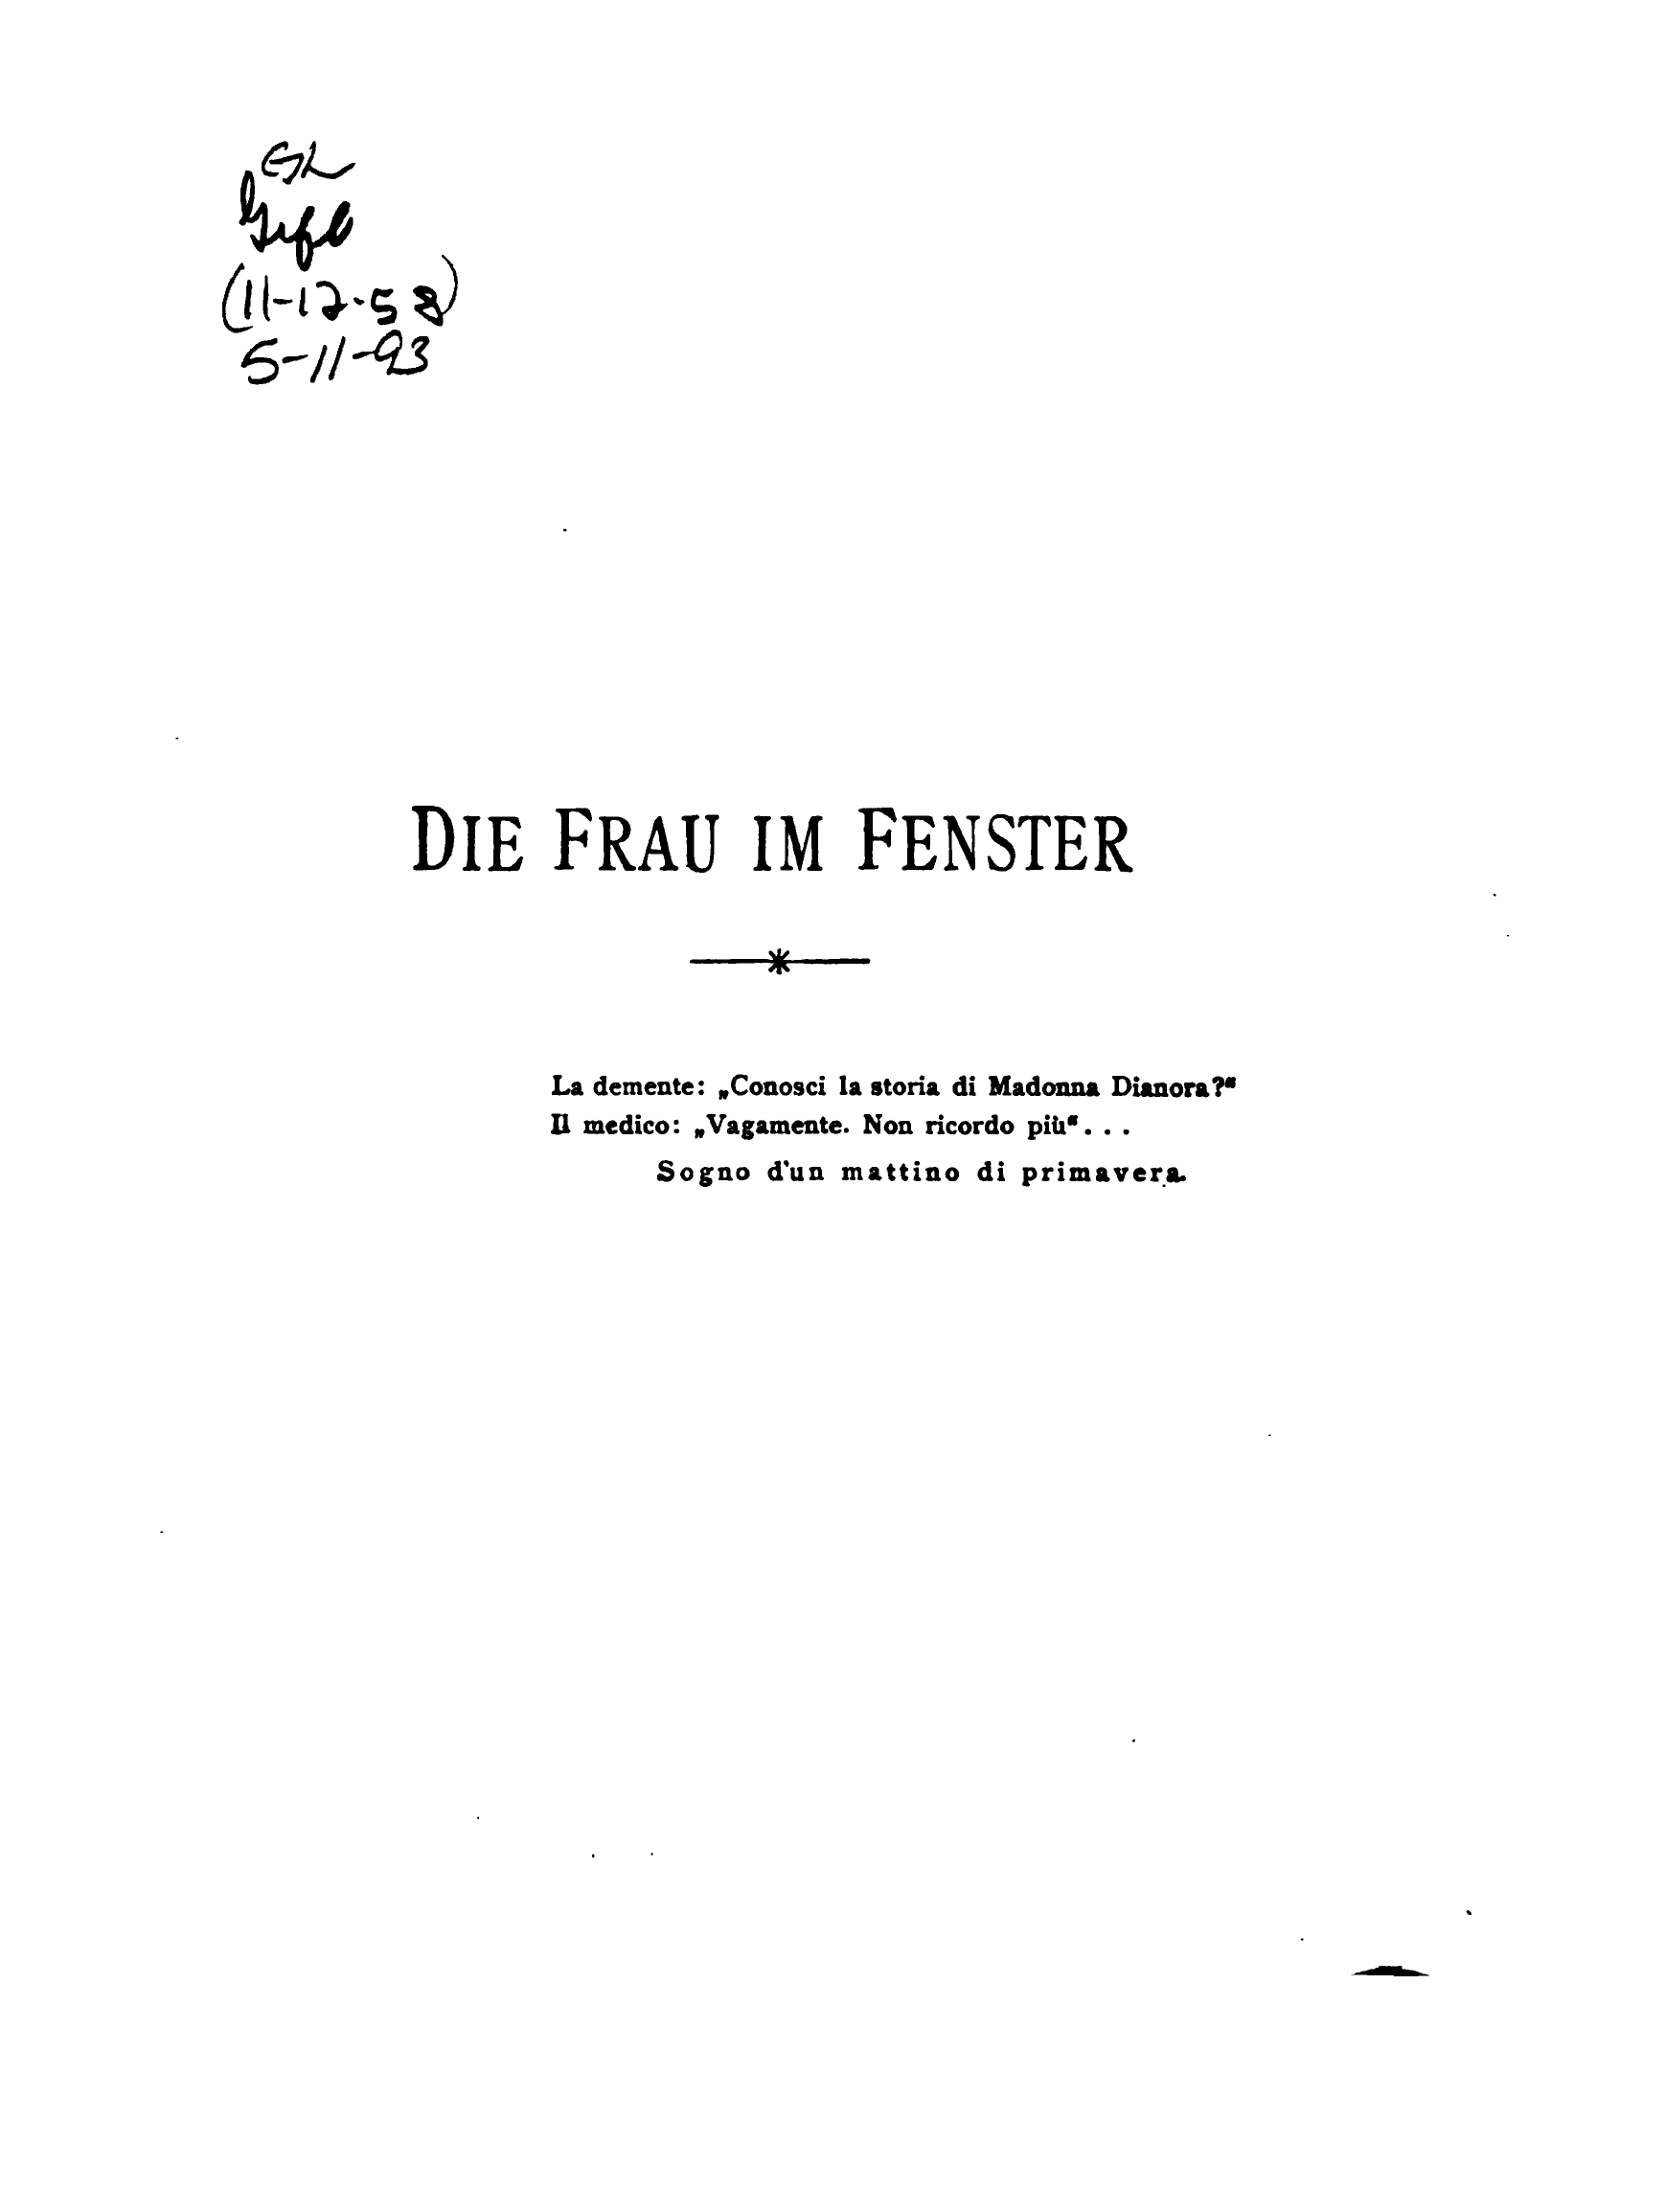 GL
Gift
(11-12-58)
5-11-93
DIE FRAU IM FENSTER
La demente: „Conosci la storia di Madonna Dianora?“
Il medico: „Vagamente. Non ricordo più“...
Sogno d'un mattino di primavera.